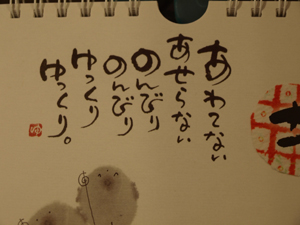 あわてない
あせらない
のんびり
のんびり
ゆっくり
ゆっくり。